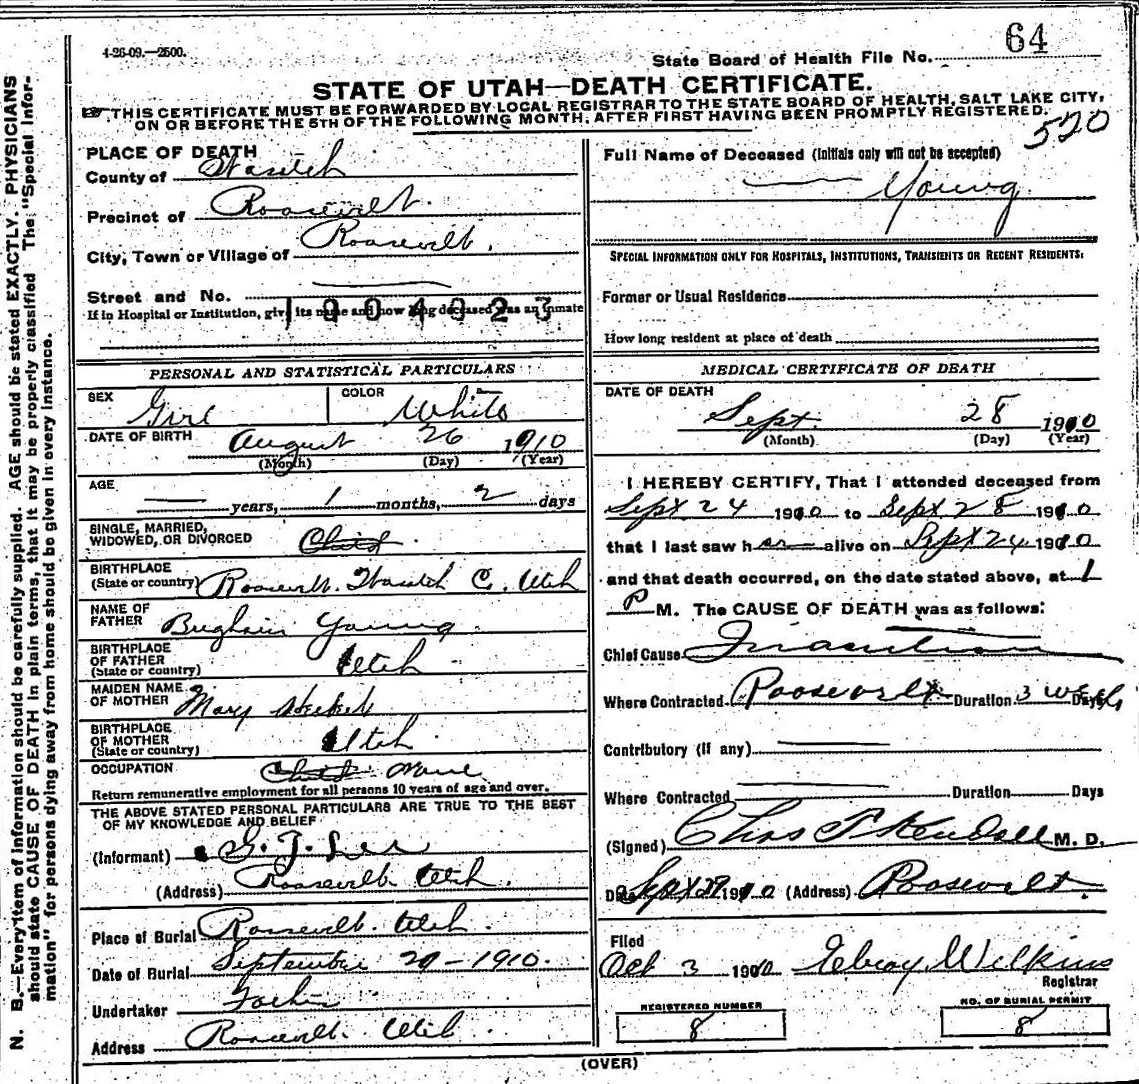 4-26-09.—2500.
64
State Board of Health File No.
STATE OF UTAH—DEATH CERTIFICATE.
THIS CERTIFICATE MUST BE FORWARDED BY LOCAL REGISTRAR TO THE STATE BOARD OF HEALTH, SALT LAKE CITY,
ON OR BEFORE THE 5TH OF THE FOLLOWING MONTH, AFTER FIRST HAVING BEEN PROMPTLY REGISTERED.
520
N. B.—Every item of information should be carefully supplied. AGE should be stated EXACTLY. PHYSICIANS
should state CAUSE OF DEATH in plain terms, that it may be properly classified. The "Special Infor-
mation" for persons dying away from home should be given in every instance.
PLACE OF DEATH
County of Wasatch
Precinct of Roosevelt.
City, Town or Village of Roosevelt.
Street and No. ———
If in Hospital or Institution, give its name and how long deceased was an inmate
1904923
PERSONAL AND STATISTICAL PARTICULARS
SEX Girl
COLOR White
DATE OF BIRTH August 26 1910
(Month) (Day) (Year)
AGE — years, 1 months, 2 days
SINGLE, MARRIED,
WIDOWED, OR DIVORCED Child
BIRTHPLACE
(State or country) Roosevelt. Wasatch C. Utah
NAME OF
FATHER Brigham Young
BIRTHPLACE
OF FATHER
(State or country) Utah
MAIDEN NAME
OF MOTHER Mary
BIRTHPLACE
OF MOTHER
(State or country) Utah
OCCUPATION Child None
Return remunerative employment for all persons 10 years of age and over.
THE ABOVE STATED PERSONAL PARTICULARS ARE TRUE TO THE BEST
OF MY KNOWLEDGE AND BELIEF
(Informant) G. J. Lee
(Address) Roosevelt Utah.
Place of Burial Roosevelt. Utah.
Date of Burial September 29-1910.
Undertaker
Address Roosevelt. Utah.
Full Name of Deceased (Initials only will not be accepted)
— — Young
SPECIAL INFORMATION ONLY FOR HOSPITALS, INSTITUTIONS, TRANSIENTS OR RECENT RESIDENTS:
Former or Usual Residence
How long resident at place of death
MEDICAL CERTIFICATE OF DEATH
DATE OF DEATH
Sept. 28 1910
(Month) (Day) (Year)
I HEREBY CERTIFY, That I attended deceased from
Sept 24 1910 to Sept 28 1910
that I last saw her alive on Sept 24 1910
and that death occurred, on the date stated above, at 1
P M. The CAUSE OF DEATH was as follows:
Chief Cause Inanition
Where Contracted Roosevelt Duration 3 weeks Days
Contributory (If any) ———
Where Contracted ——— Duration Days
(Signed) Chas T Kendall M. D.
Date Sept 29 1910 (Address) Roosevelt.
Filed
Oct 3 1910 Elroy Wilkins
Registrar
REGISTERED NUMBER
8
NO. OF BURIAL PERMIT
8
(OVER)